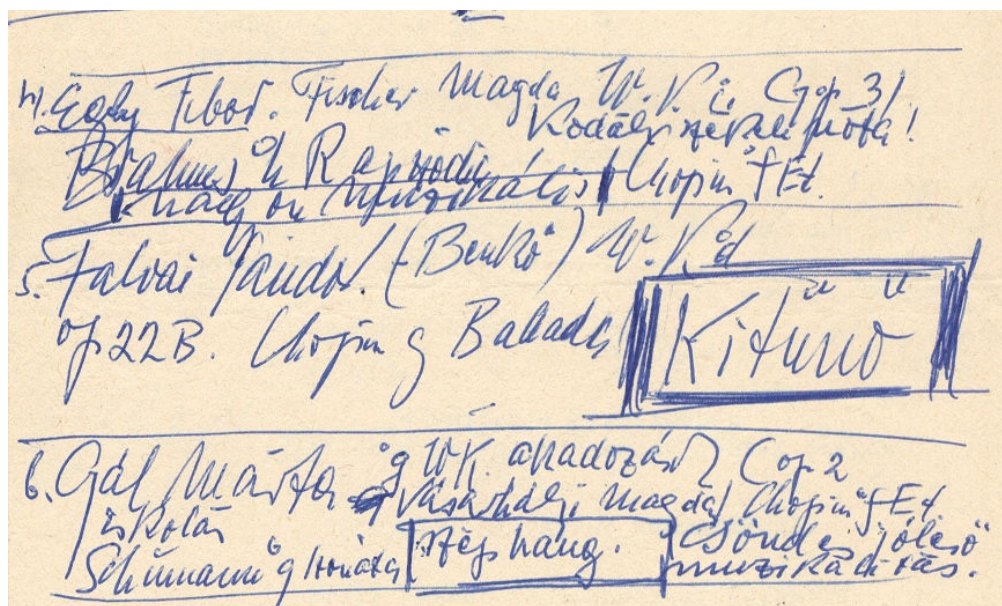 4. Egly Tibor. Fischer Magda W.K. C op 31
Kodály székely nóta!
Brahms h Rapszódia Chopin f Et.
nagyon muzikális
5. Falvai Sándor. (Benkő) W.K. d
op 22 B. Chopin g Ballada Kitűnő
6. Gál Márta g W.K. akadozás C op 2
iskolás Vásárhelyi Magda Chopin f Et
Schumann g szonáta szép hang. csöndes jóleső
muzikálitás.